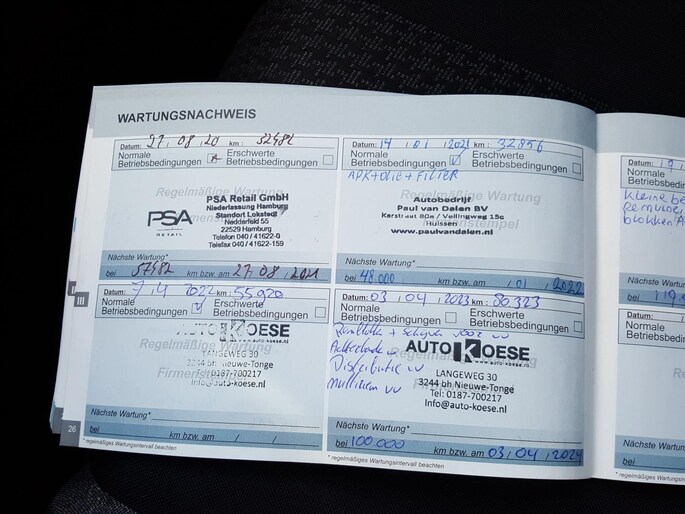 WARTUNGSNACHWEIS
Datum: 27 , 08 , 20 km : 32482
Normale Betriebsbedingungen
Erschwerte Betriebsbedingungen
Regelmäßige Wartung
PSA
RETAIL
PSA Retail GmbH
Niederlassung Hamburg
Standort Lokstedt
Nedderfeld 55
22529 Hamburg
Telefon 040 / 41622-0
Telefax 040 / 41622-159
Nächste Wartung*
bei 57482 km bzw. am 27 , 08 , 2021
Datum: 14 , 01 , 2021 km : 32856
Normale Betriebsbedingungen
Erschwerte Betriebsbedingungen
APK + OLIE + FILTER
Regelmäßige Wartung
Autobedrijf
Paul van Dalen BV
Karstraat 80a / Veilingweg 15c
Huissen
www.paulvandalen.nl
Nächste Wartung*
bei 48.000 km bzw. am / 01 / 2022
7 , 4 2022 55.920
Normale Betriebsbedingungen
Erschwerte Betriebsbedingungen
Regelmäßige Wartung
AUTO KOESE
www.auto-koese.nl
LANGEWEG 30
3244 bh Nieuwe-Tonge
Tel: 0187-700217
Info@auto-koese.nl
Nächste Wartung*
bei km bzw. am / /
Datum: 03 , 04 , 2023 km: 80323
Normale Betriebsbedingungen
Erschwerte Betriebsbedingungen
Distributie vv
AUTO KOESE
www.auto-koese.nl
LANGEWEG 30
3244 bh Nieuwe-Tonge
Tel: 0187-700217
Info@auto-koese.nl
Nächste Wartung*
bei 100.000 km bzw. am 03 , 04 , 2024
III
26
* regelmäßiges Wartungsintervall beachten
* regelmäßiges Wartungsintervall beachten
Datum: 19
Normale
Betriebsbedingungen
Kleine
blokken
Nächste Wartung*
bei
Datum:
Normale
Betriebsbedingungen
Nächste
bei